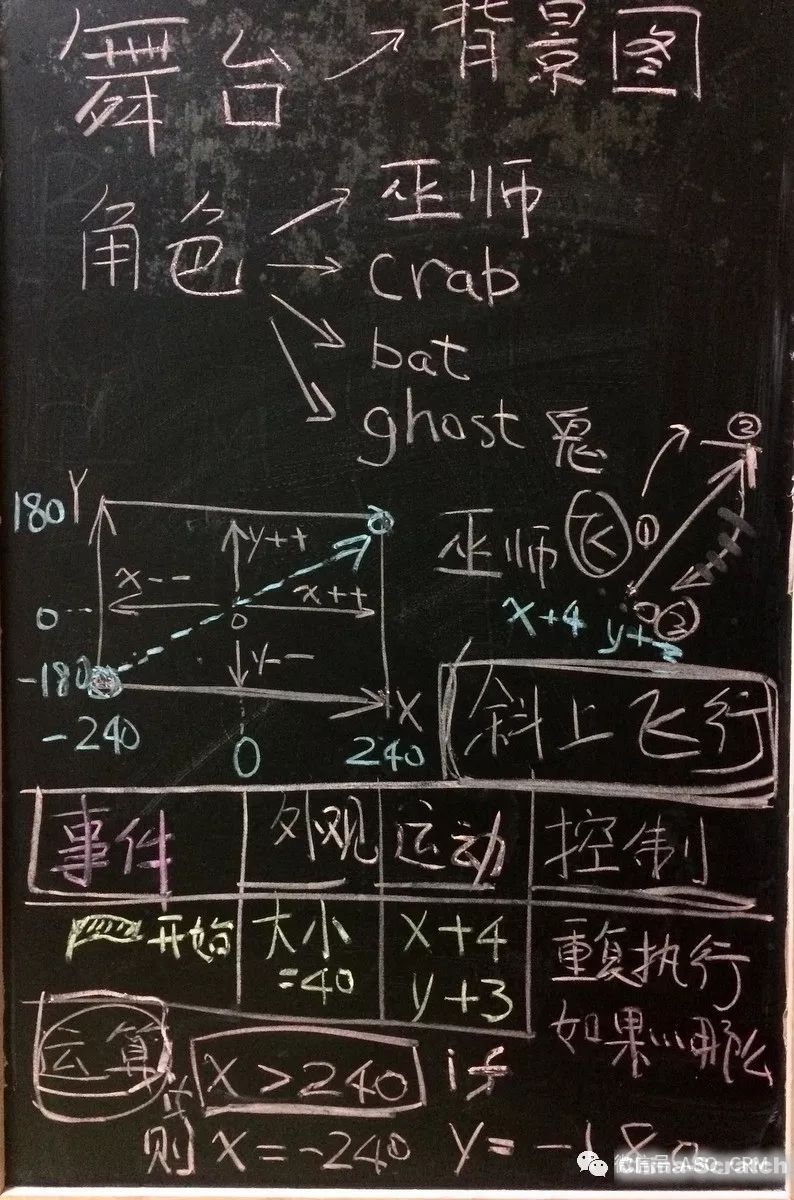 舞台→背景图
角色→巫师
→crab
→bat
→ghost 鬼
②
180 Y
y++
巫师 飞 ①
x--
x++
0
0
③
x+4 y+3
-180
y--
X
-240
0
240
斜上飞行
事件 外观 运动 控制
开始 大小 x+4 重复执行
=40 y+3 如果…那么
运算 x>240 if
则 x=-240 y=-180
微信号: ASO_CRM
China-Scratch